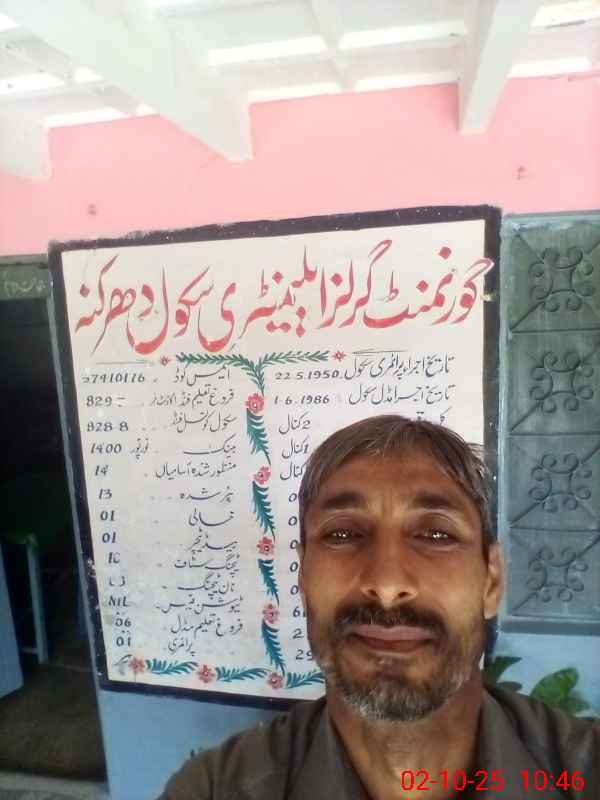 گورنمنٹ گرلز ایلیمنٹری سکول دھرکنہ
تاریخ اجراء پرائمری سکول 22.5.1950
تاریخ اجراء مڈل سکول 1-6.1986
2 کنال
1 کنال
کنال
ایمس کوڈ 37410176
فروغ تعلیم فنڈ اکاؤنٹ نمبر 829-
سکول کونسل فنڈ 828-8
بینک نورپور 1400
منظور شدہ آسامیاں 14
پُر شدہ 13
خالی 01
ہیڈ ٹیچر 01
ٹیچنگ سٹاف 10
نان ٹیچنگ 03
ٹیوشن فیس NIL
فروغ تعلیم مڈل 06
پرائمری 01
02-10-25 10:46